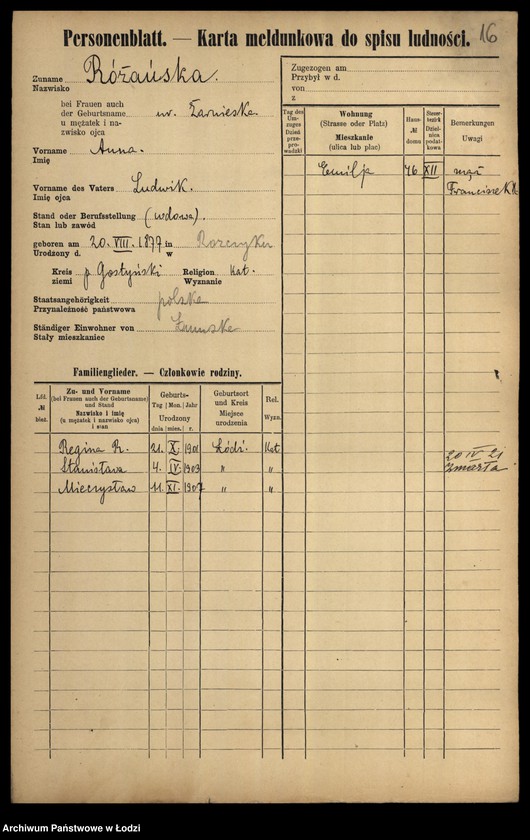 16
Personenblatt. — Karta meldunkowa do spisu ludności.
Zuname Różańska.
Nazwisko
bei Frauen auch
der Geburtsname
u mężatek i na-
zwisko ojca
ur. Żarnieska
Vorname Anna.
Imię
Vorname des Vaters Ludwik.
Imię ojca
Stand oder Berufsstellung (wdowa).
Stan lub zawód
geboren am 20. VIII. 1877 in
Urodzony d. w
Kreis p. Gostyński Religion kat.
ziemi Wyznanie
Staatsangehörigkeit polska
Przynależność państwowa
Ständiger Einwohner von
Stały mieszkaniec
Zugezogen am
Przybył w d.
von
z
Tag des Um-zuges Dzień prze-prowadzki
Wohnung (Strasse oder Platz) Mieszkanie (ulica lub plac)
Haus-№ domu
Steuer-bezirk Dziel-nica podat-kowa
Bemerkungen Uwagi
Emilja 76 XII mąż
Franciszek
20 IV 21
zmarła
Familienglieder. — Członkowie rodziny.
Lfd. № bież.
Zu- und Vorname (bei Frauen auch der Geburtsname) und Stand Nazwisko i imię (u mężatek i nazwisko ojca) i stan
Geburts- Tag Mon. Jahr Urodzony dnia mies. r.
Geburtsort und Kreis Miejsce urodzenia
Rel. Wyzn.
Regina R. 21. X. 1901 Łódź. Kat
Stanisława 4. IV. 1903 " "
Mieczysław 11. XI. 1907 " "
Archiwum Państwowe w Łodzi